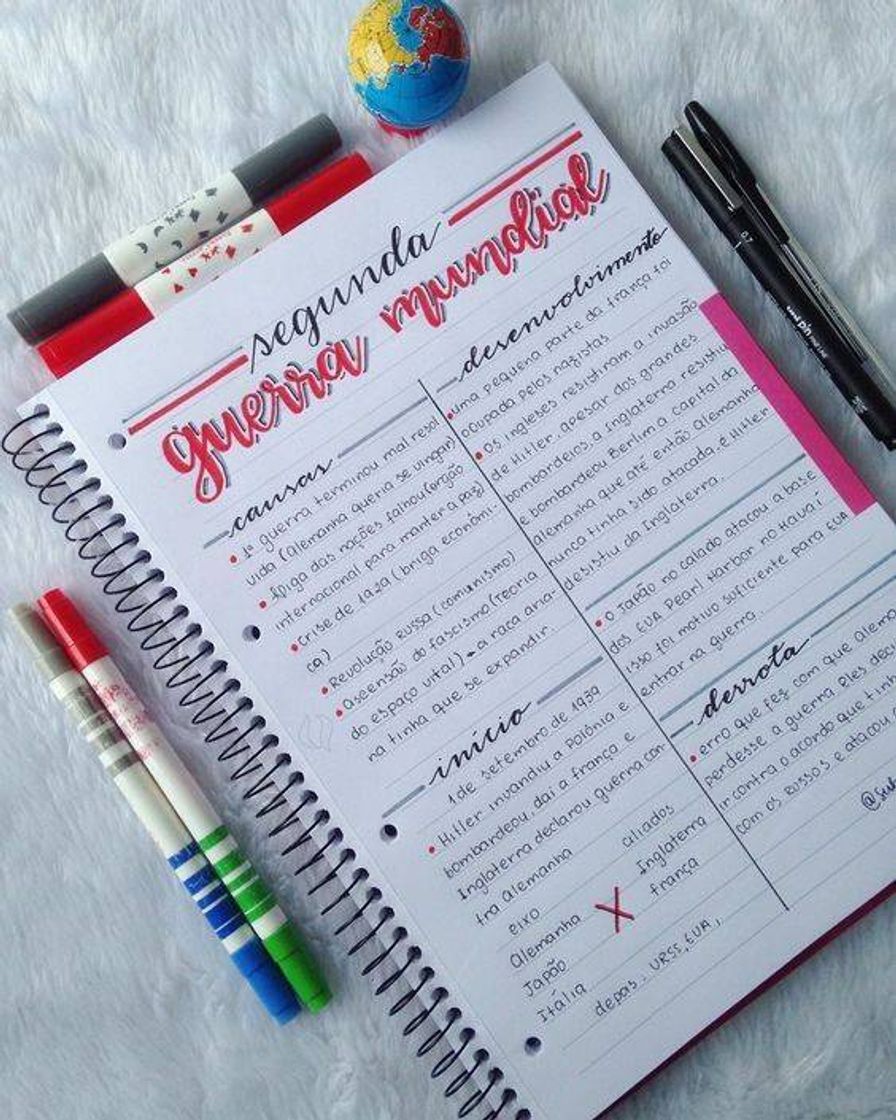 segunda
guerra mundial
causas
• 1ª guerra terminou mal resol
vida (Alemanha queria se vingar)
• A liga das nações falhou (orgão
internacional para manter a paz)
• Crise de 1929 (briga econômi-
ca)
• Revolução Russa (comunismo)
• Ascensão do fascismo (Teoria
do espaço vital) → a raça aria-
na tinha que se expandir.
início
1 de setembro de 1939
• Hitler invandiu a Polônia e
bombardeou, daí a frança e
Inglaterra declarou guerra con-
tra Alemanha
eixo
aliados
Alemanha X Inglaterra
Japão
frança
Itália
depois. URSS, EUA,
desenvolvimento
• uma pequena parte da frança foi
ocupada pelos nazistas
• Os ingleses resistiram a invasão
de Hitler, apesar dos grandes
bombardeios, a Inglaterra resistiu
e bombardeou Berlim a capital da
Alemanha que até então Alemanha
nunca tinha sido atacada. e Hitler
desistiu da Inglaterra.
• O Japão no calado atacou a base
dos EUA Pearl Harbor no Havaí
isso foi motivo suficiente para EUA
entrar na guerra.
derrota
• erro que fez com que Alem
perdesse a guerra Eles deci
ir contra o acordo que tin
com os Russos e atacou
uni pin
0.7